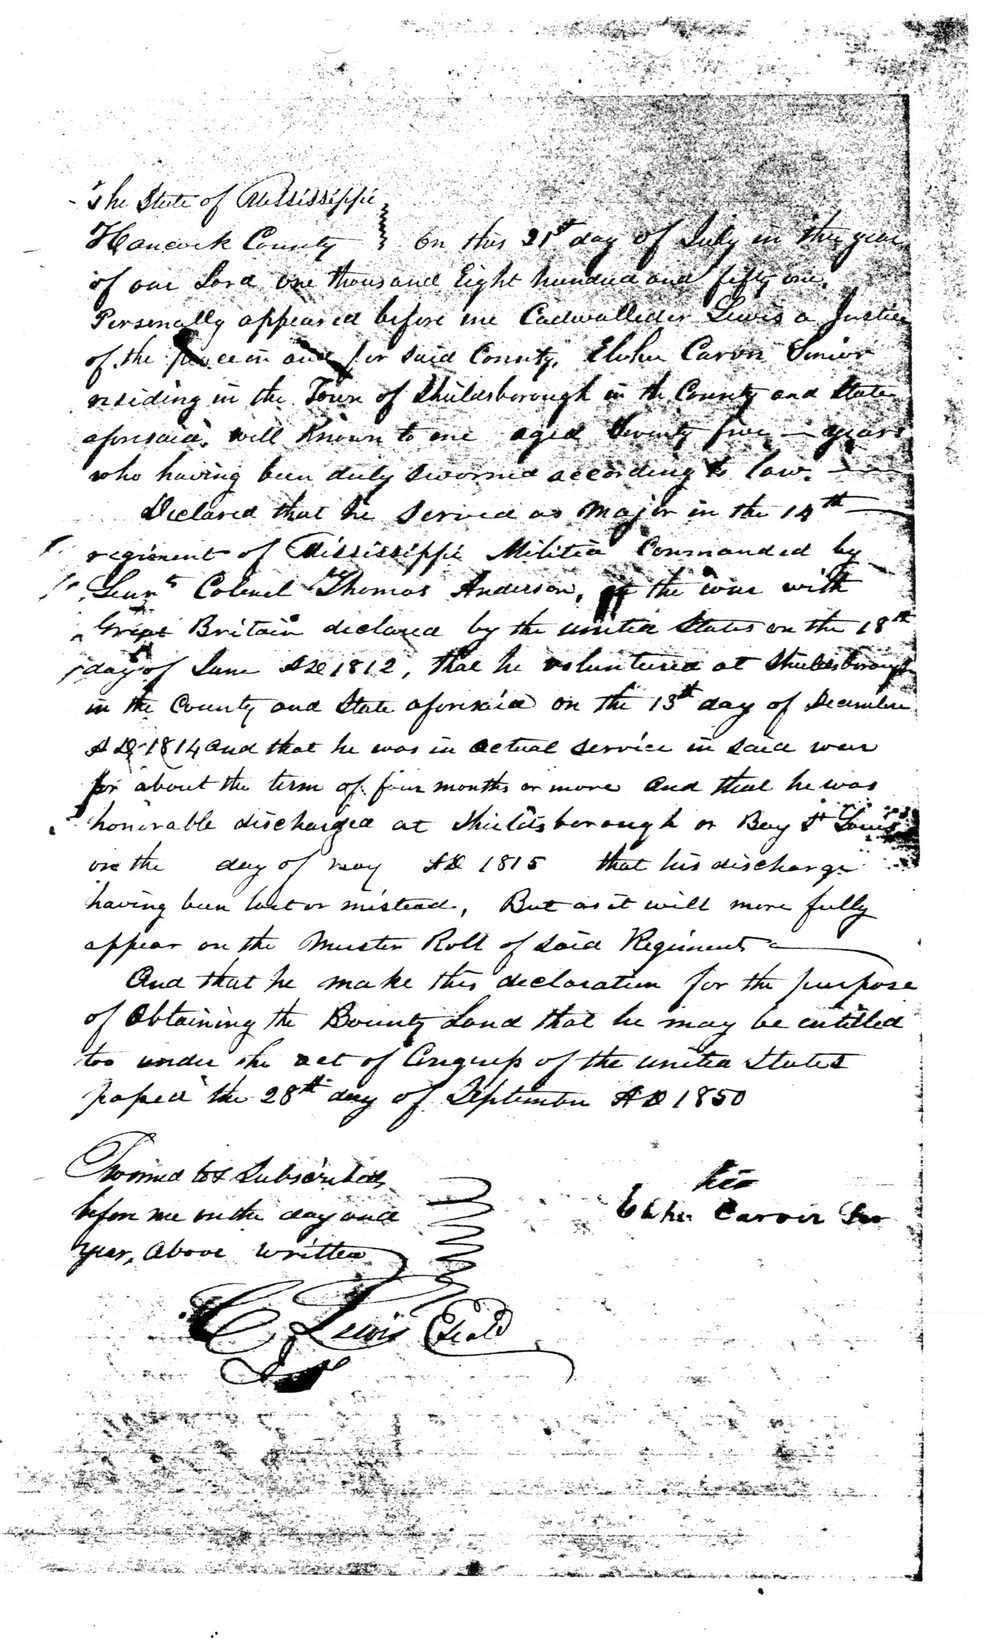 The State of Mississippi
Hancock County } On this 21st day of July in the year
of our Lord one thousand Eight hundred and fifty one.
Personally appeared before me Cadwalleder Lewis a Justice
of the peace in and for said County, Elihu Carver Senior
residing in the Town of Shieldsborough in the County and State
aforesaid, well Known to me aged Seventy five — years
who having been duly sworned according to law. —
Declared that he served as Major in the 14th —
regiment of Mississippi Militia Commanded by
Colonel Thomas Anderson, the war with
Great Britain declared by the united States on the 18th
day of June AD 1812, that he voluntured at Shieldsborough
in the County and State aforesaid on the 13th day of December
AD 1814 and that he was in actual service in said war
for about the term of four months or more And that he was
honorable discharged at Shieldsborough or Bay St Louis
on the day of may AD 1815 that his discharge
having been lost or mislead, But as it will more fully
appear on the Muster Roll of said Regiment —
And that he make this declaration for the purpose
of Obtaining the Bounty Land that he may be entitled
too under the act of Congress of the united States
passed the 28th day of September AD 1850
Sworned to & Subscribed
before me on the day and
year, above written
his
Carver
C Lewis (Seal)